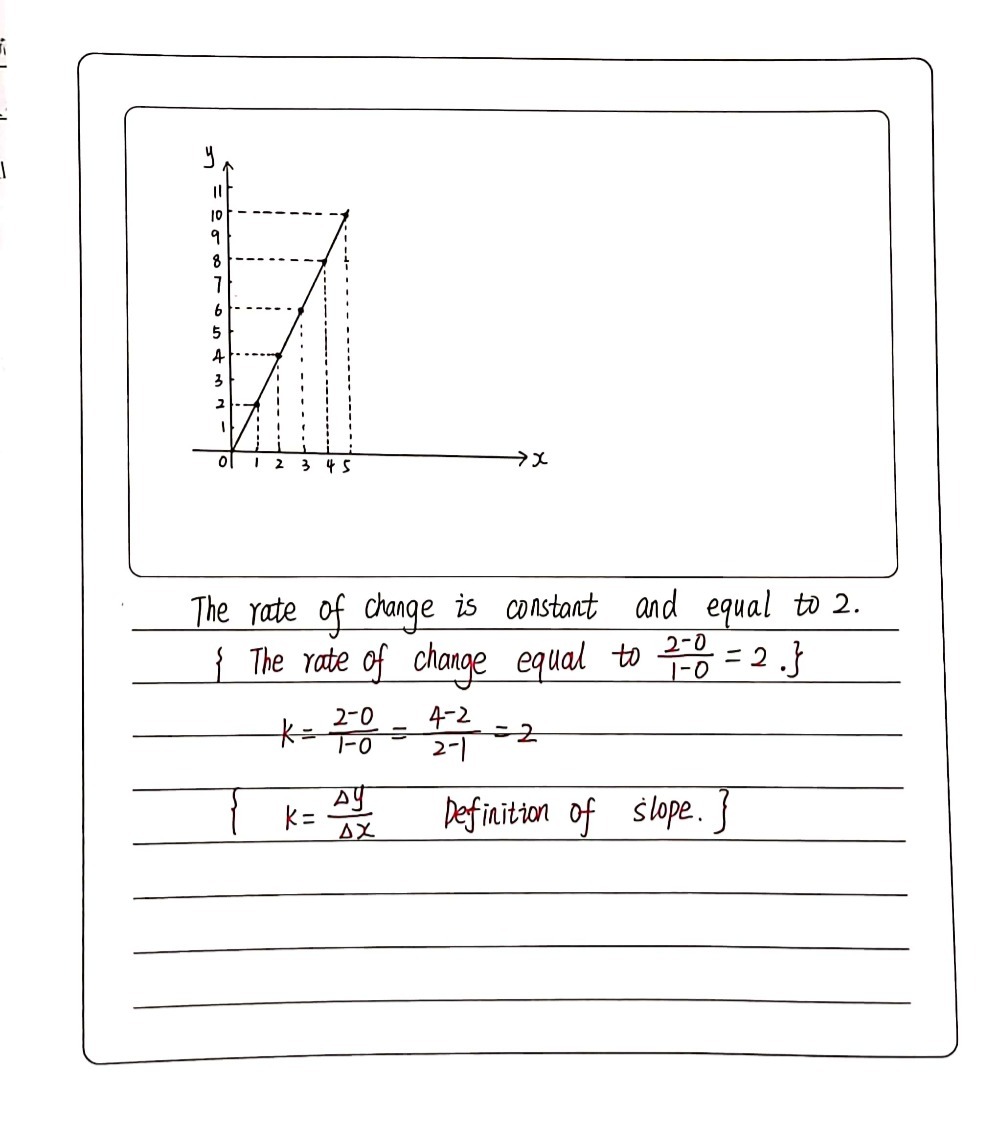 y
11
10
9
8
7
6
5
4
3
2
1
0 1 2 3 4 5 x
The rate of change is constant and equal to 2.
{ The rate of change equal to \frac{2-0}{1-0} = 2 .}
k = \frac{2-0}{1-0} = \frac{4-2}{2-1} = 2
{ k = \frac{Δy}{Δx} Definition of slope. }